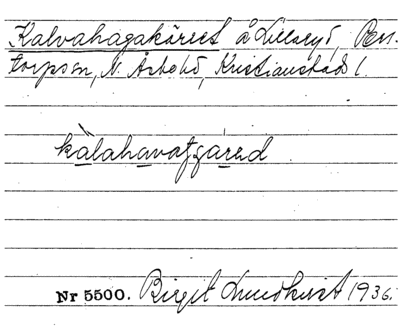 Kalvahagakäret å Lillaryd, Per-
torpssn, N. Åsbohd, Kristianstads l.
kàlahavatzared
Nr 5500. Birgit Lundkvist 1936.